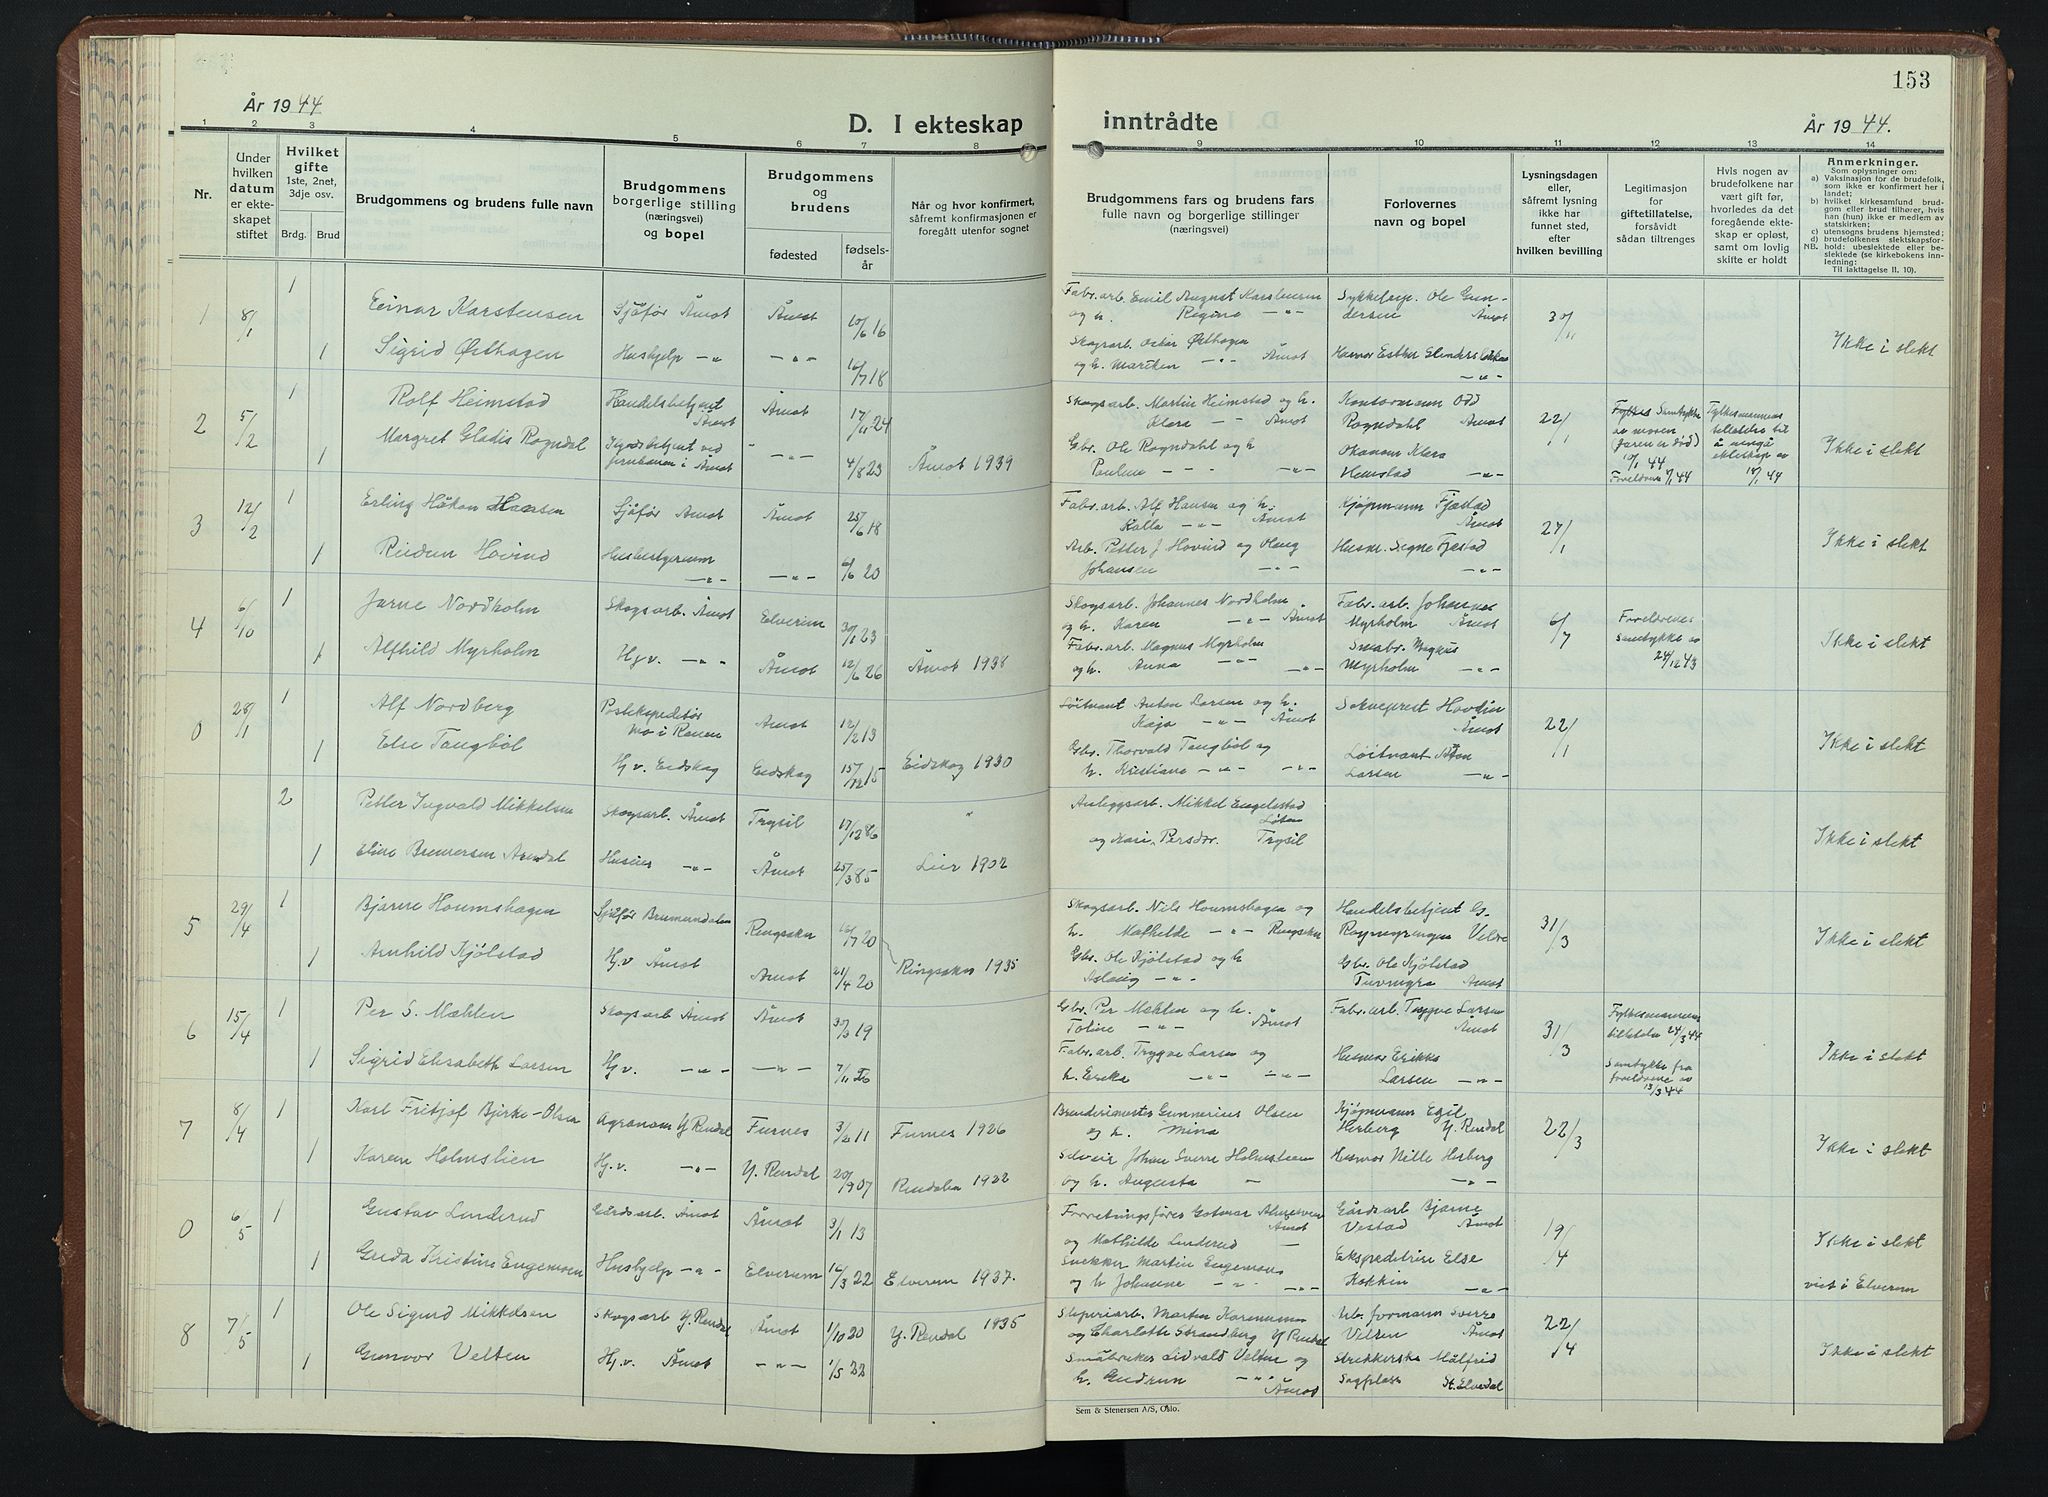 År 1944
D. I ekteskap
1 2 3 4 5 6 7 8
Nr.
Under hvilken datum er ekteskapet stiftet
Hvilket gifte 1ste, 2net, 3dje osv.
Brdg. Brud
Brudgommens og brudens fulle navn
Brudgommens borgerlige stilling (næringsvei) og bopel
Brudgommens og brudens
fødested
fødsels-år
Når og hvor konfirmert, såfremt konfirmasjonen er foregått utenfor sognet
1 8/1 1 Einar Karstensen Sjåfør Åmot Åmot 10/6 16
1 Sigrid Østhagen Hushjelp -"- -"- 16/7 18
2 5/2 1 Rolf Heimstad Handelsbetjent Åmot Åmot 17/11 24
1 Margret Gladis Rogndal jernbanen i Åmot -"- 4/8 23 Åmot 1939
3 12/2 1 Erling Håkon Hansen Sjåfør Åmot Åmot 25/6 18
1 Reidun Hovind Husbestyrerinne -"- -"- 6/6 20
4 6/10 1 Jarne Nordholm Skogsarb. Åmot Elverum 30/1 23
1 Alfhild Myrholm Hj.v. -"- Åmot 12/6 26 Åmot 1938
0 28/1 1 Alf Nordberg Postekspeditør Mo i Ranen Åmot 12/2 13
1 Else Tangbøl Hj.v. Eidskog Eidskog 15/12 15 Eidskog 1930
2 Petter Ingvald Mikkelsen Skogsarb. Åmot Trysil 17/12 86 "
1 Eline Bremersen Arndal Huseier -"- Åmot 25/3 85 Lier 1902
5 29/4 1 Bjarne Houmshagen Sjåfør Brumunddalen Ringsaker 16/7 20
1 Arnhild Kjølstad Hj.v Åmot Åmot 21/4 20 Ringsaker 1935
6 15/4 1 Per S. Mæhlen Skogsarb Åmot Åmot 30/3 19
1 Sigrid Elisabeth Larsen Hj.v. -"- -"- 7/11 26
7 8/4 1 Karl Fritjof Bjerke-Olsen Agronom Y. Rendal Furnes 3/2 11 Furnes 1926
1 Karen Holmslien Hj.v. -"- Y. Rendal 20/9 07 Rendalen 1922
0 6/5 1 Gustav Linderud Gårdsarb. Åmot Åmot 3/1 13
1 Gerda Kristine Engemoen Hushjelp -"- Elverum 16/3 22 Elverum 1937.
8 7/5 1 Ole Sigurd Mikkelsen Skogsarb Y. Rendal Åmot 1/10 20 Y. Rendal 1935
1 Gunvor Velten Hj.v. Åmot -"- 1/5 22
153
inntrådte
År 1944.
9 10 11 12 13 14
Brudgommens fars og brudens fars fulle navn og borgerlige stillinger (næringsvei)
Forlovernes navn og bopel
Lysningsdagen eller, såfremt lysning ikke har funnet sted, efter hvilken bevilling
Legitimasjon for giftetillatelse, forsåvidt sådan tiltrenges
Hvis nogen av brudefolkene har vært gift før, hvorledes da det foregående ekteskap er opløst, samt om lovlig skifte er holdt
Anmerkninger.
Som oplysninger om:
a) Vaksinasjon for de brudefolk, som ikke er konfirmert her i landet;
b) hvilket kirkesamfund brudgom eller brud tilhører, hvis han (hun) ikke er medlem av statskirken;
c) utensogns brudens hjemsted;
d) brudefolkenes slektskapsforhold: ubeslektede eller beslektede (se kirkebokens innledning:
NB. Til iakttagelse II, 10).
Fabr.arb. Emil August Karstensen Sykkelrep. Ole Gun-
og h. Regine -"- dersen Åmot 30/11
Skogsarb. Oskar Østhagen Husmor Esther Ikke i slekt
og h. Marthen -"- Åmot -"-
Skogsarb. Martin Heimstad og h. Kontormann Odd
Klara -"- Åmot Rogndahl Åmot 22/1 av moren tillatelse til
Gbr. Ole Rogndahl og h (faren er død) å inngå Ikke i slekt
Pauline - - - -"- Heimstad -"- 10/1 44 ekteskap av
Foreldrene 44 18/1 44
Fabr.arb. Alf Hansen og h. Kjøpmann Fjæstad
Kalla -"- Åmot Åmot 27/1
Arb. Petter J. Hovind og Olaug Husm. Signe Fjæstad Ikke i slekt
Johansen -"- -"-
Skogsarb. Johannes Nordholm Fabr.arb. Johannes
og h. Karen -"- Åmot Myrholm Åmot 6/7 Foreldrenes
Fabr.arb. Magnus Myrholm Småbr. Magnus samtykke av Ikke i slekt
og h. Anna -"- -"- Myrholm -"- 24/12 43
Løitnant Anton Larsen og h. Sokneprest Hovdin
Kaja -"- Åmot Åmot 22/1
Gbr. Thorvald Tangbøl og Løitnant Anton Ikke i slekt
h. Kristiane -"- -"- Larsen -"-
Anleggsarb. Mikkel Engelstad
Løten
og Kari Persdtr. Trysil Ikke i slekt
Skogsarb. Nils Houmshagen og Handelsbetjent
h. Mathilde -"- Ringsaker Veldre 31/3
Gbr. Ole Kjølstad og h Gbr. Ole Kjølstad Ikke i slekt
Aslaug -"- Åmot
Gbr. Per Mæhlen og h. Fabr.arb. Trygve Larsen Fylkesmannens
Toline -"- Åmot Åmot 31/3 tillatelse 24/3 44
Fabr.arb. Trygve Larsen og Husmor Erikka Samtykke fra Ikke i slekt
h. Erika -"- -"- Larsen -"- foreldrene av
13/3 44
Brenderimester Gunnerius Olsen Kjøpmann Egil
og h. Mina Herberg Y. Rendal 22/3
Selveir Johan Sverre Holmslien Husmor Nille Herberg Ikke i slekt
og h. Augusta " -"-
Forretningsfører Gårdsarb Bjarne
Åmot Vestad Åmot 19/4
og Mathilde Linderud - Ikke i slekt
Snekker Martin Engemoen Ekspeditrise Else
og h Johanne -"- -"- Kokkin -"- viet i Elverum
Sliperiarb. Morten Arb. formann Sverre
og Charlotte Strandberg Y. Rendal Velten Åmot 22/4
Småbruker Lidvald Velten og Strekkerske Målfrid Ikke i slekt
h. Gudrun -"- Åmot Sagplass St. Elvedal
Sem & Stenersen A/S, Oslo.